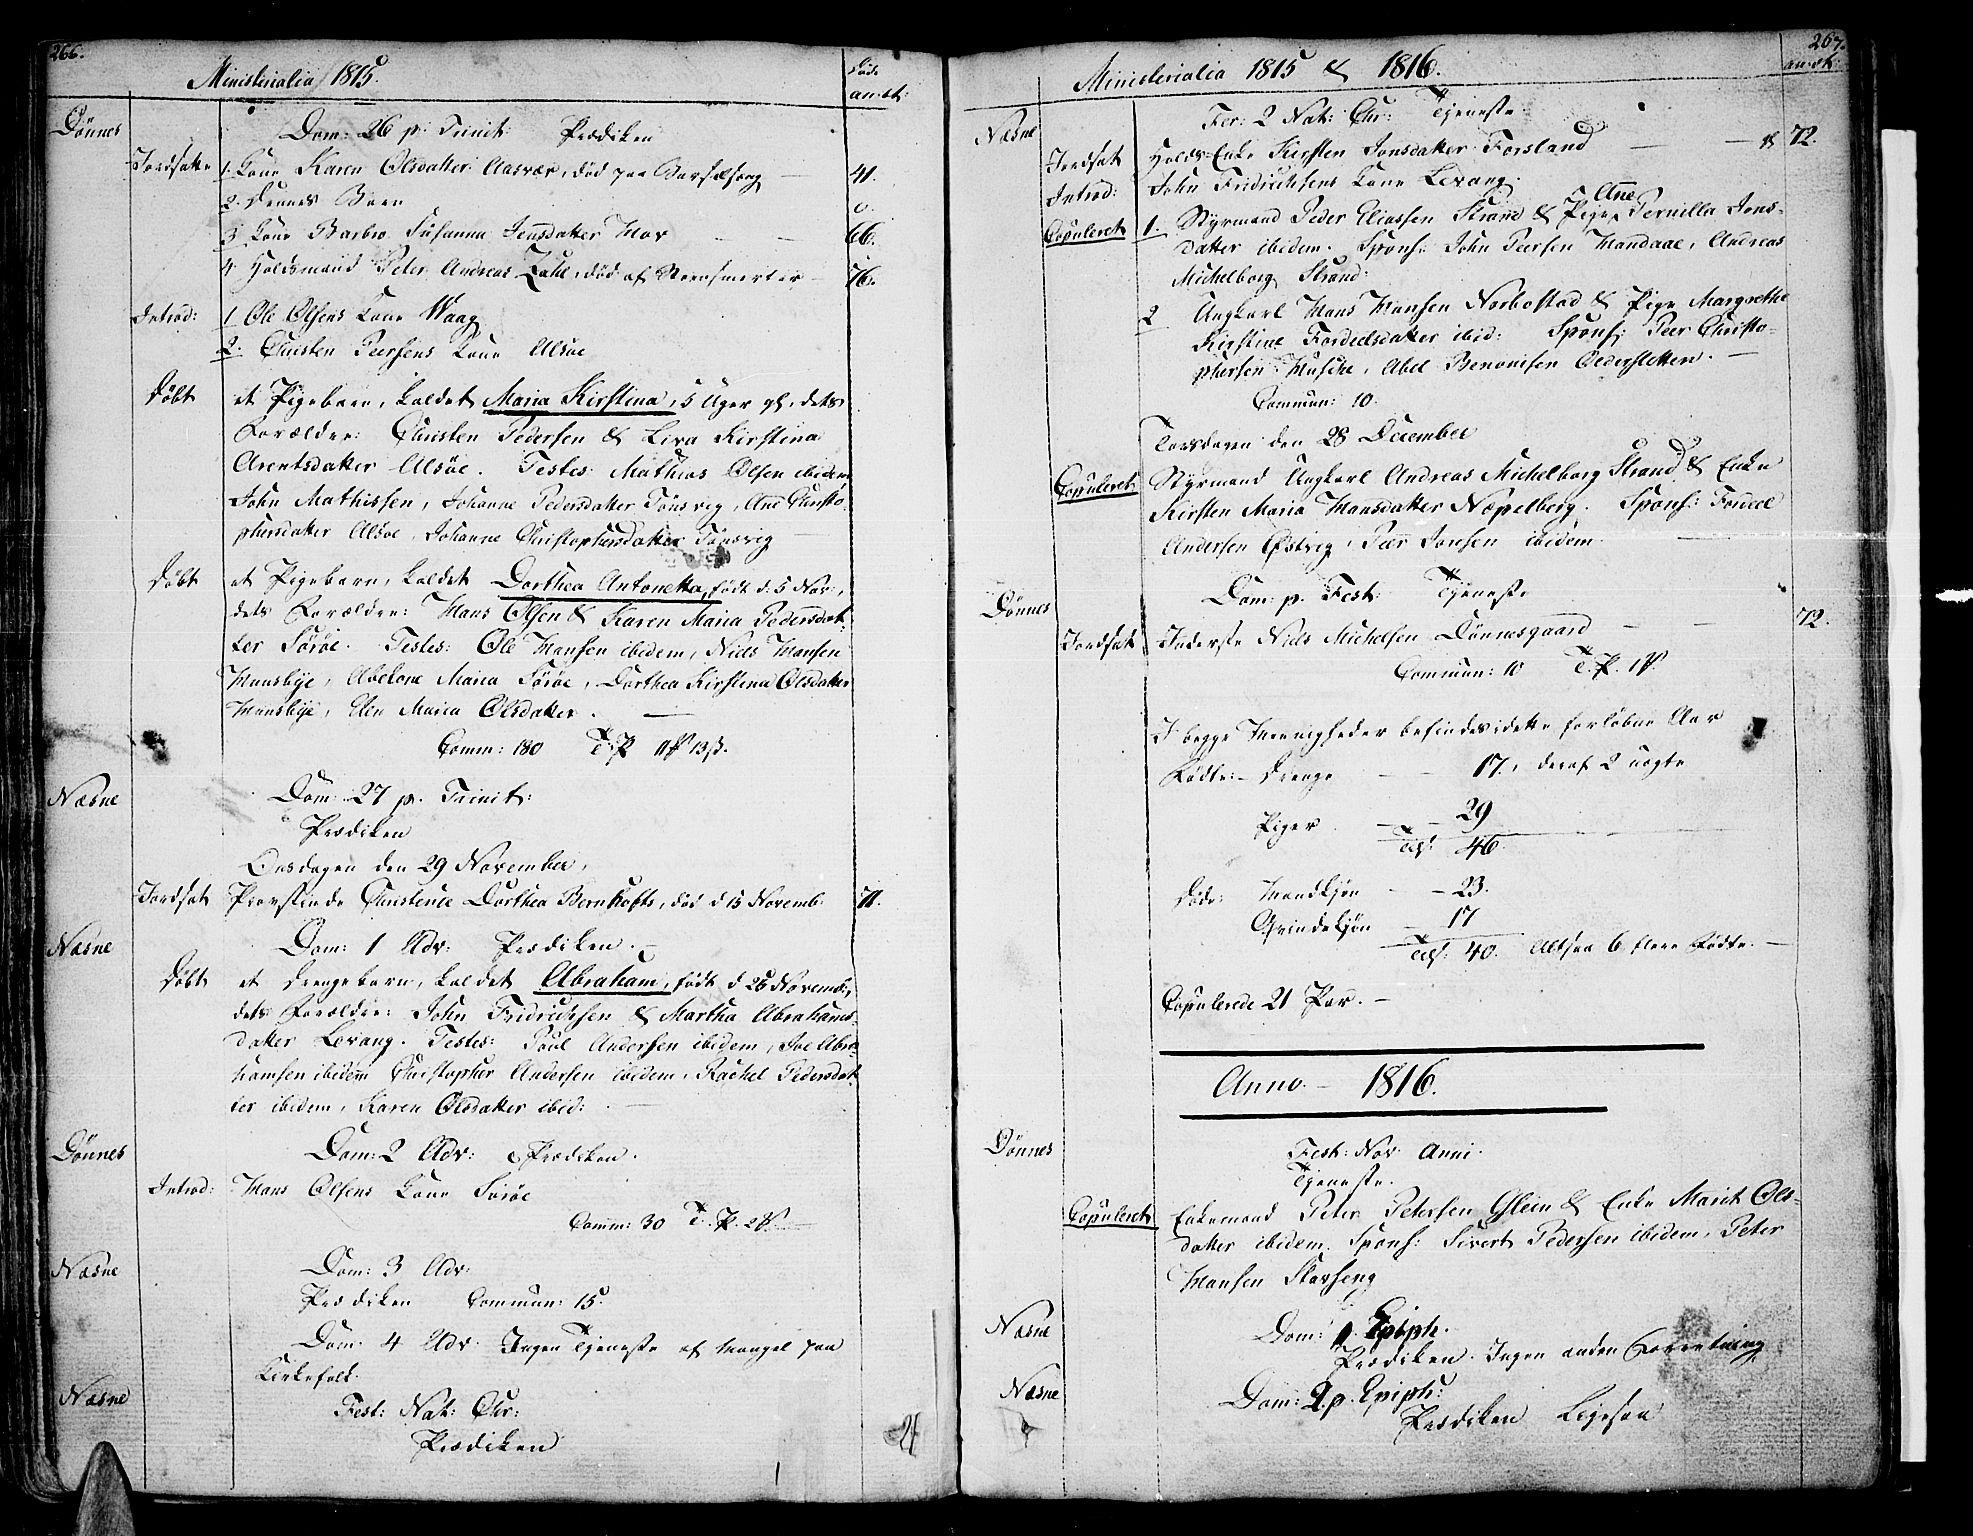 266.
Ministerialia 1815.
an: et:
Dönnes
Dom: 26 p: Trinit: Prædiken
Jordfæstet 1. Kone Karen Olsdatter Aasvær, død paa Barselseng — 41.
2. Dennes Barn 0.
3 Kone Barbro Susanna Jensdatter Hov — — 66.
4. Holdsmand Peter Andreas Zahl, død af — 76.
Introd: 1 Ole Olsens Kone Waag
2. Christen Peersens Kone Alsøe
Döbt et Pigebarn, kaldet Maria Kirstina, 5 Uger gl, dets
Forældre: Christen Pedersen & Lira Kirstina
Arentsdatter Alsøe. Testes: Mathias Olsen ibidem
John Mathissen, Johanne Pedersdatter Tönsvig, Ane Christo-
phersdatter Alsøe, Johanne Christophersdatter Tönsvig —
Döbt et Pigebarn, kaldet Dorthea Antonetta, født d: 5 Nov:,
dets Forældre: Hans Olsen & Karen Maria Pedersdat-
ter Sörøe. Testes: Ole Hansen ibidem, Niels Hansen
Huusbÿe, Abelone Maria Sörøe, Dorthea Kirstina Olsdatter
Huusbÿe, Elen Maria Olsdatter. —
Comm: 180 T. P. 11 13ß.
Næsne
Dom: 27 p. Trinit:
Prædiken
Onsdagen den 29 November,
Jordfæstet Provstinde Christence Dorthea Bernhofts, død d 15 Novemb: 71.
Næsne
Dom: 1 Adv: Prædiken.
Döbt et Drengebarn, kaldet Abraham, født d 26 Novemb:,
dets Forældre: John Fridrichsen & Martha Abrahams-
datter Levang. Testes: Poul Andersen ibidem, Joe Abra-
hamsen ibidem Christopher Andersen ibidem, Rachel Pedersdat-
ter ibidem, Karen Olsdatter ibid: —
Dönnes
Dom: 2 Adv: Prædiken.
Introd: Hans Olsens Kone Sörøe
Comm: 30 T. P. 2
Næsne
Dom: 3 Adv:
Prædiken Commun: 15.
Dom: 4 Adv: Ingen Tjeneste af Mangel paa
Kirkefolk.
Næsne
Fest: Nat: Chr:
Prædiken
267.
Ministerialia 1815 & 1816.
an: et:
Næsne
Fer: 2 Nat: Chr: Tjeneste.
Jordfæstet Holds-Enke Kirsten Jonsdatter Forsland — — 72.
Introd: John Fridrichsens Kone Levang.
Copuleret 1. Styrmand Peder Eliassen Strand & Pige Ane Pernilla Jons-
datter ibidem. Spons: John Peersen Handaae, Andreas
Michelborg Strand.
2 Ungkarl Hans Hansen Norbostad & Pige Margrethe
Kirstine Fordeelsdatter ibid: Spons: Peer Christo-
phersen Husche, Abel Benonisen Oldersletten. —
Commun: 10.
Torsdagen den 28 December
Copuleret. Styrmand Ungkarl Andreas Michelborg Strand & Enke
Kirsten Maria Hansdatter Næpelberg. Spons: Fordeel
Andersen Östvig, Peer Jonsen ibidem. —
Dönnes
Dom: p. Fest: Tjeneste
Jordfæstet Inderste Niels Michelsen Dönnesgaard — — 72.
Commun: 10 T. P. 1
I begge Menigheder befindes i dette forløbne Aar
Födte: Drenge — — 17, deraf 2 uægte
Piger — — 29
Tils: 46.
Døde: Mandkjön — — 23.
Qvindekjön — 17
Tils: 40. Altsaa 6 flere Födte. —
Copulerede 21 Par. —
Anno — 1816.
Dönnes
Fest: Nov: Anni.
Tjeneste.
Copuleret Enkemand Peter Petersen Glein & Enke Marit Ols-
datter ibidem. Spons: Sivert Pedersen ibidem, Peter
Hansen Skavseng
Næsne
Dom: 1 p. Epiph.
Prædiken. Ingen anden Forretning
Næsne
Dom: 2. p. Epiph:
Prædiken Ligesaa